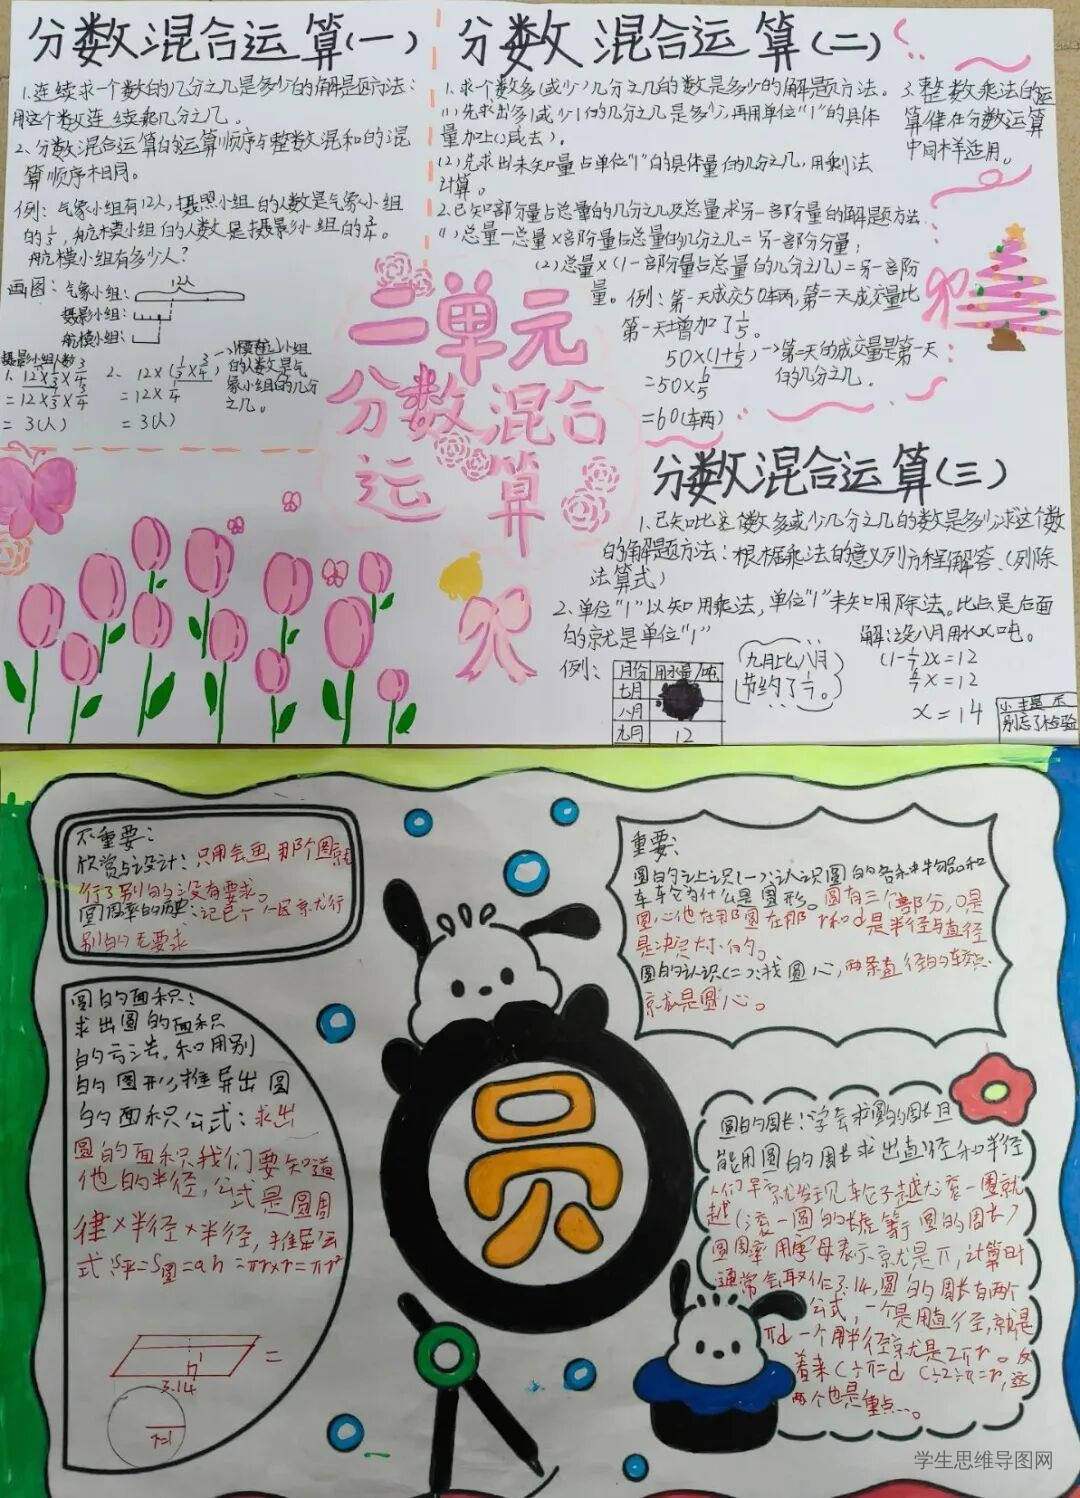 分数混合运算(一)
1.连续求一个数的几分之几是多少的解题方法：
用这个数连续乘几分之几。
2.分数混合运算的运算顺序与整数混和的混
算顺序相同。
例：气象小组有12人，摄照小组的人数是气象小组
的1/3，航模小组的人数是摄影小组的3/4。
航模小组有多少人？
画图：气象小组：
12人
摄影小组：
航模小组：
摄影小组人数
1. 12×1/3×3/4
=12×1/3×3/4
=3(人)
2. 12×(1/3×3/4)
=12×1/4
=3(人)
小组
的人数是气
象小组的几分
之几。
二单元
分数混合
运算
分数混合运算(二)
1.求个数多(或少)几分之几的数是多少的解题方法。
(1)先求出多(或少)的几分之几是多少，再用单位"1"的具体
量加上(或减去)。
(2)先求出未知量占单位"1"的具体量的几分之几，用乘法
计算。
2.已知部分量占总量的几分之几及总量求另一部分量的解题方法
(1)总量-总量×部份量占总量的几分之几=另一部分分量；
(2)总量×(1-部分量占总量的几分之几)=另一部份
量。例：第一天成交50车两，第二天成交量比
第一天增加了1/5。
50×(1+1/5)→第一天的成交量是第一天
的几分之几。
=50×6/5
=60(车两)
3.整数乘法的运
算律在分数运算
中同样适用。
分数混合运算(三)
1.已知比这个数多或少几分之几的数是多少，求这个数
的解题方法：根据乘法的意义列方程解答、(列除
法算式)
2.单位"1"以知用乘法，单位"1"未知用除法。比占是后面
的就是单位"1"
例：
月份 用水量/吨
七月
八月
九月 12
九月比八月
节约了1/7。
解：设八月用水x吨。
(1-1/7)x=12
6/7x=12
x=14
小提示
别忘了检验
不重要：
欣赏与设计：只用会画那个圆就
行了别的没有要求。
圆周率的历史：记已个人区就行
别的无要求
重要：
圆的认识(一)：认识圆的各种物品和
车轮为什么是圆形。圆有三个部分，O是
圆心他在那圆在那 r和d是半径与直径
是决定大小的。
圆的认识(二)：找圆心，两条直径的交点
就是圆心。
圆的面积：
求出圆的面积
的方法。和用别
的图形推导出圆
的面积公式：求出
圆的面积我们要知道
他的半径，公式是圆周
律×半径×半径，推导公
式：S平=S圆=ah=πr×r=πr²
h
=
3.14
r=1
圆
圆的周长：学会求圆的周长且
能用圆的周长求出直径和半径
人们早就发现车轮子越大滚一圈就
越(滚一圆的长度等于圆的周长)
圆周率用字母表示就是π，计算时
通常会取值3.14，圆的周长有两个
公式，一个是用直径，就是
πd 一个用半径就是2πr。反
着来 C÷π=d C÷2÷π=r，这
两个也是重点…。
学生思维导图网